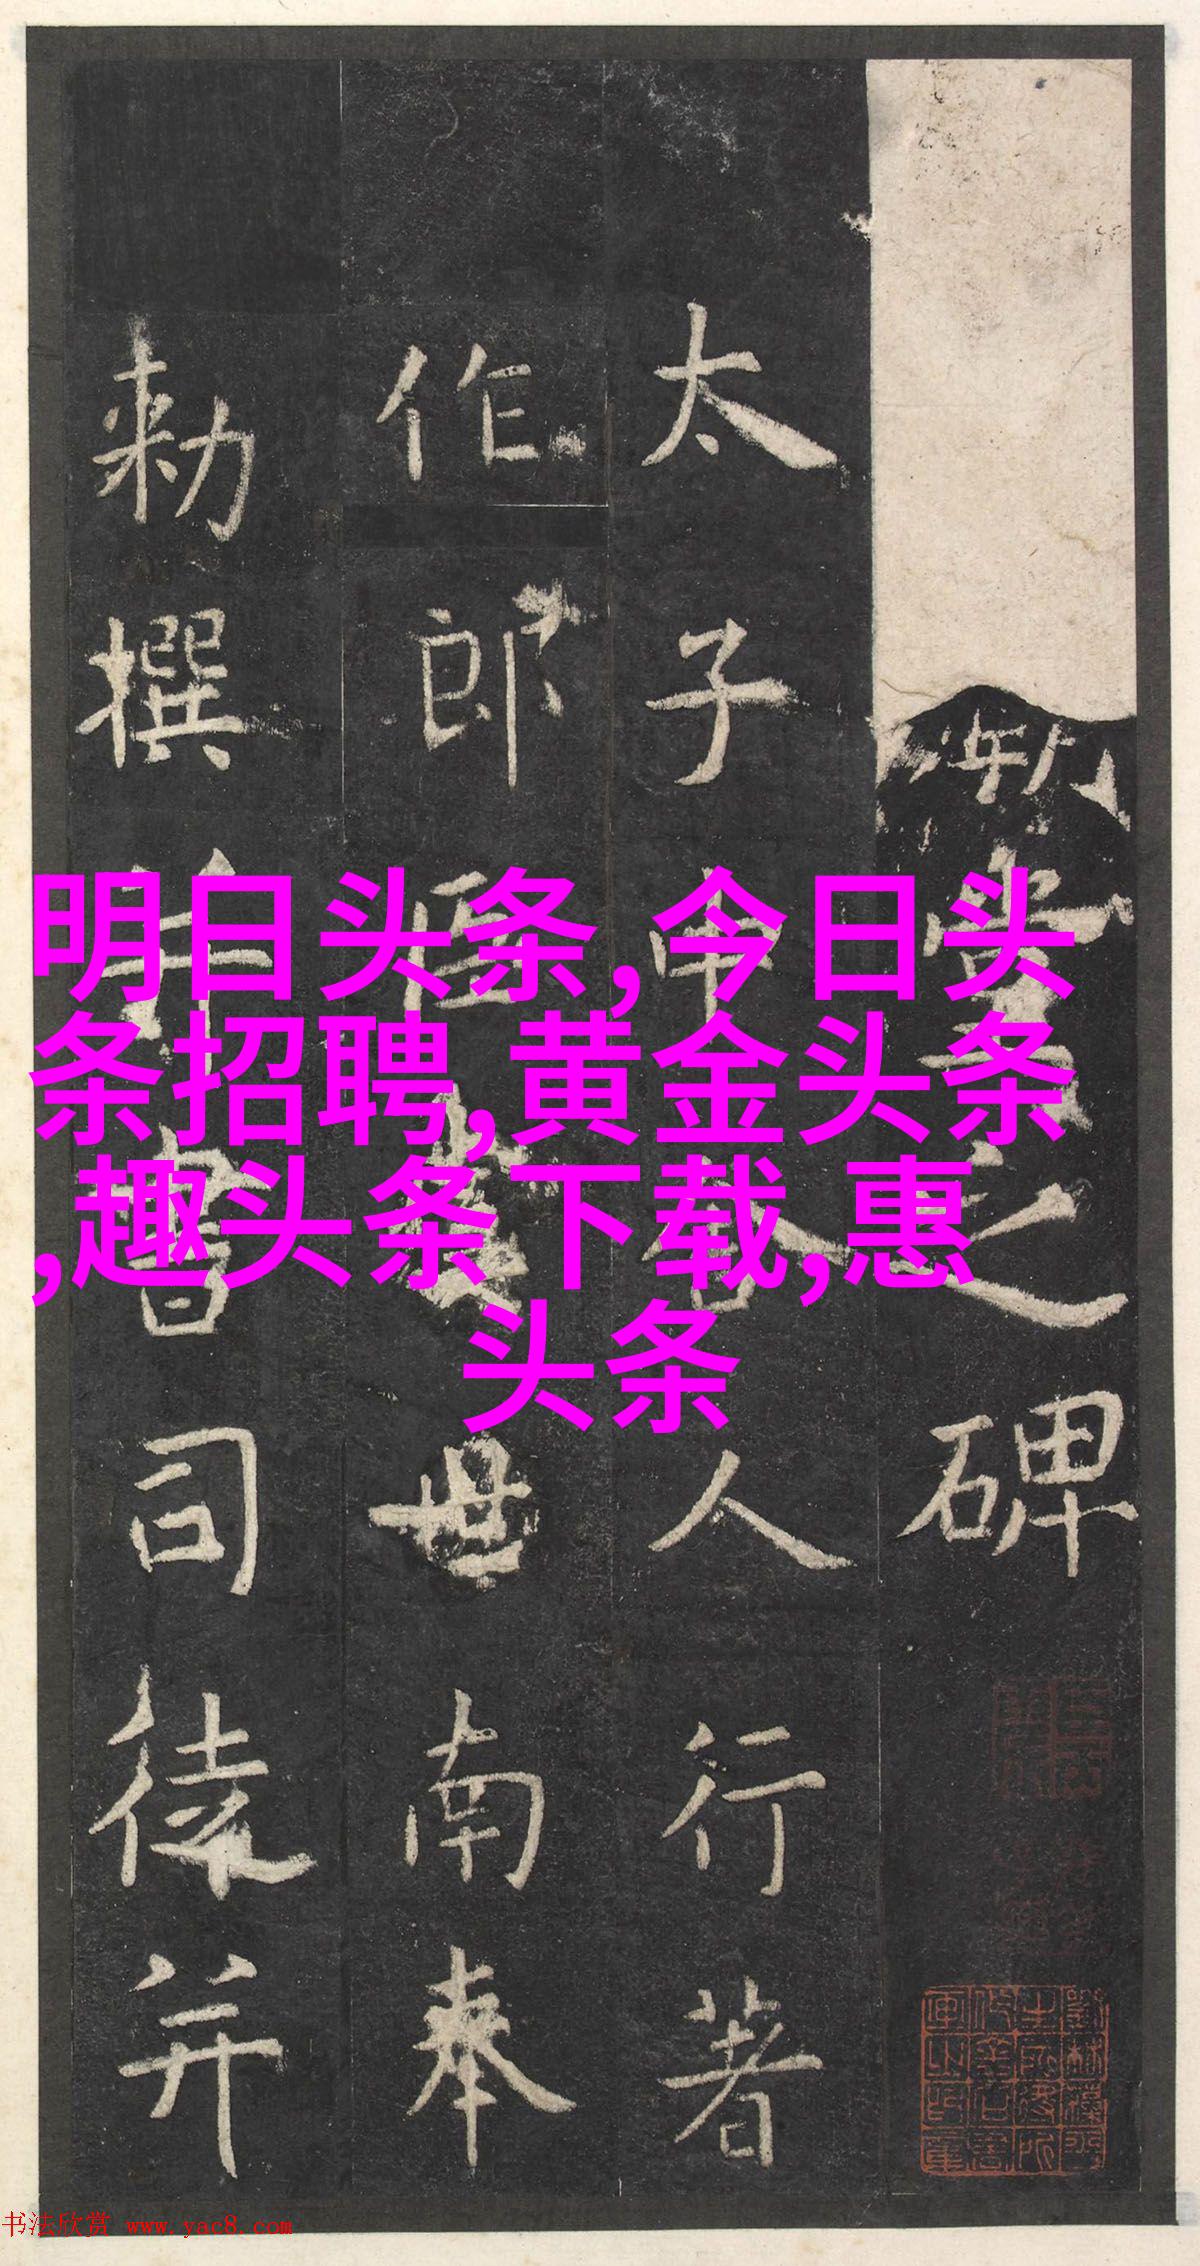 明日头条,今日头
条招聘,黄金头条
,趣头条下载,惠
头条
堂之碑
太子中舍人行著
作郎臣虞世南奉
勅撰并書司徒并
书法欣赏 www.yac8.com